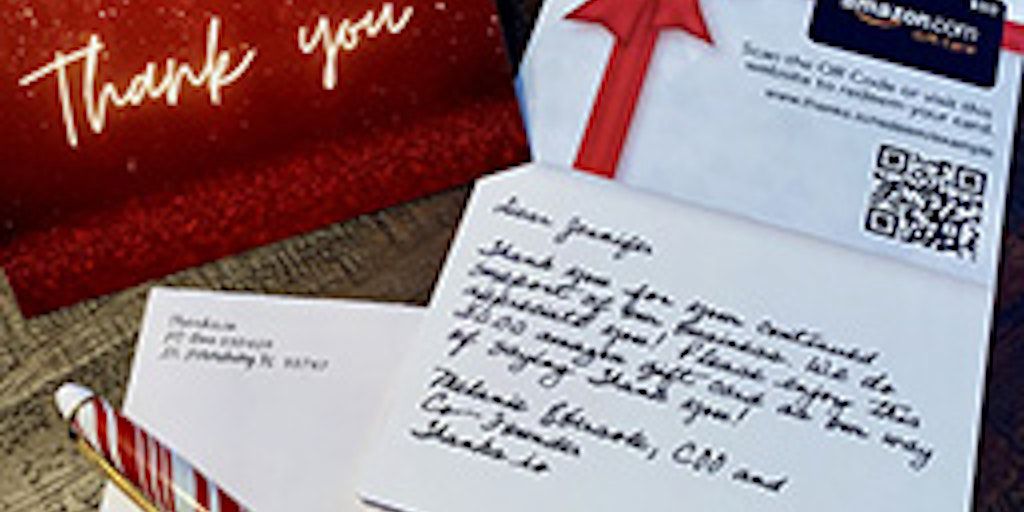 Thank you
amazon.com
Gift Card
Scan the QR Code or visit this
website to redeem your card.
Dear Jennifer
Thank you for your continued
support of our business. We do
appreciate you! Please enjoy this
amazon gift card as our way
of saying Thank you!
Melanie COO and
Co-Founder
Thanks.io
St. Petersburg FL